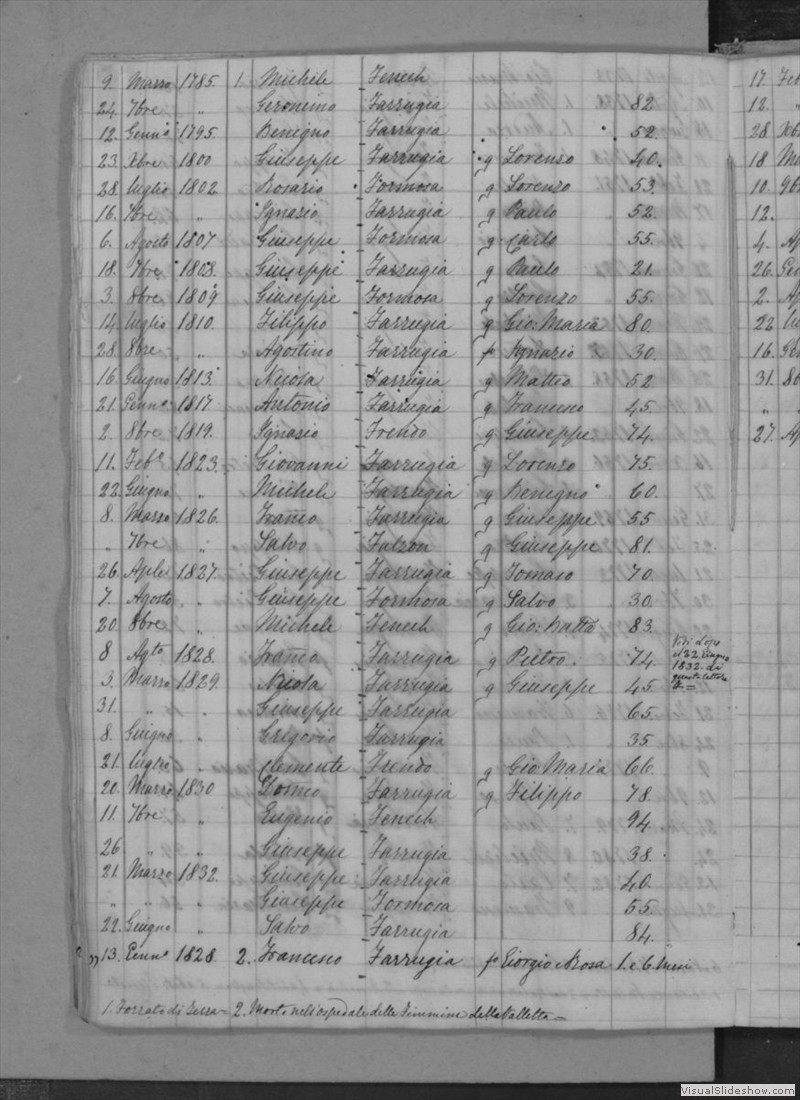 9. Marzo 1785. 1. Michele Fenech
24. 7bre " Geronimo Farrugia 82.
12. Genn.o 1795. Benigno Farrugia 52.
23. Xbre 1800 Giuseppe Farrugia g Lorenzo 40.
28. Luglio 1802. Rosario Formosa g Lorenzo 53.
16. 7bre " Ignazio Farrugia g Paulo 52.
6. Agosto 1807 Giuseppe Formosa g Carlo 55.
18. 7bre 1808. Giuseppe Farrugia g Paulo 21.
3. 8bre 1809 Giuseppe Formosa g Lorenzo 55.
14. Luglio 1810. Filippo Farrugia g Gio: Maria 80.
28. 8bre " Agostino Farrugia fo Ignazio 30.
16. Giugno 1813. Nicola Farrugia g Matteo 52
21. Genn.o 1817 Antonio Farrugia g Francesco 45.
2. 8bre 1819. Ignazio Frendo g Giuseppe 74.
11. Feb.o 1823. Giovanni Farrugia g Lorenzo 75.
22. Giugno " Michele Farrugia g Benigno 60.
8. Marzo 1826. Franco Farrugia g Giuseppe 55
" 7bre " Salvo Falzon g Giuseppe 81.
26. Aple 1827. Giuseppe Farrugia g Tomaso 70.
7. Agosto " Giuseppe Formosa g Salvo 30.
20. 8bre " Michele Fenech g Gio: Batta 83.
8 Agto 1828. Franco Farrugia g Pietro. 74.
Vedi dopo
il 22. Giugno
1832. di
questa lettera
3. Marzo 1829. Nicola Farrugia g Giuseppe 45.
31. " " Giuseppe Farrugia 65.
8. Giugno " Grigorio Farrugia 35
21. Luglio " Clemente Frendo g Gio: Maria 66.
20. Marzo 1830 Domco Farrugia g Filippo 78.
11. 7bre " Eugenio Fenech 94.
26 " " Giuseppe Farrugia 38.
21. Marzo 1832. Giuseppe Farrugia 40.
" " " Giuseppe Formosa 55.
22. Giugno " Salvo Farrugia 84.
" 13. Genn.o 1828. 2. Francesco Farrugia fo Giorgio e Rosa 1. e 6. mesi
1. Forzato di Terra = 2. Morto nell'ospedale delle Fimmine della Valletta =
17. Feb
12. "
28 Xbr
18 Ma
10. 9b
12.
4. Ap
26. Gen
2. Ap
22 Lu
16. Gen
31. 8b
" "
27. Ap
VisualSlideshow.com